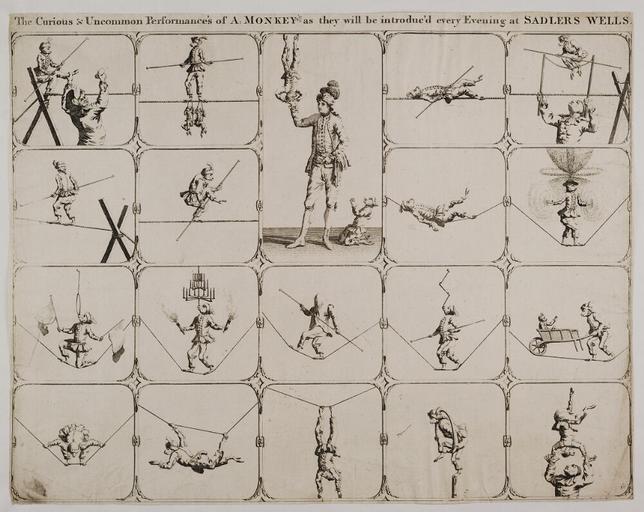 The Curious & Uncommon Performance's of A: MONKEY as they will be introduc'd every Evening at SADLERS WELLS.